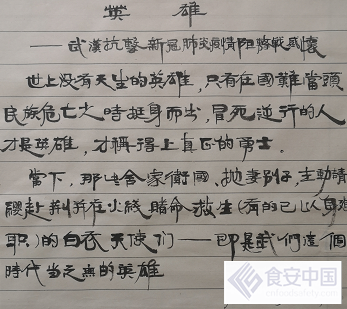 英 雄
——武漢抗擊新冠肺炎疫情阻擊戰感懷
世上没有天生的英雄，只有在國難當頭
民族危亡之時挺身而出，冒死逆行的人
才是英雄，才稱得上真正的勇士。
當下，那些舍家衛國、抛妻别子，主動請
纓赴荆并在火线賭命救生(有的已以身殉
职)的白衣天使们——即是我们這個
時代當之無的英雄
食安中国